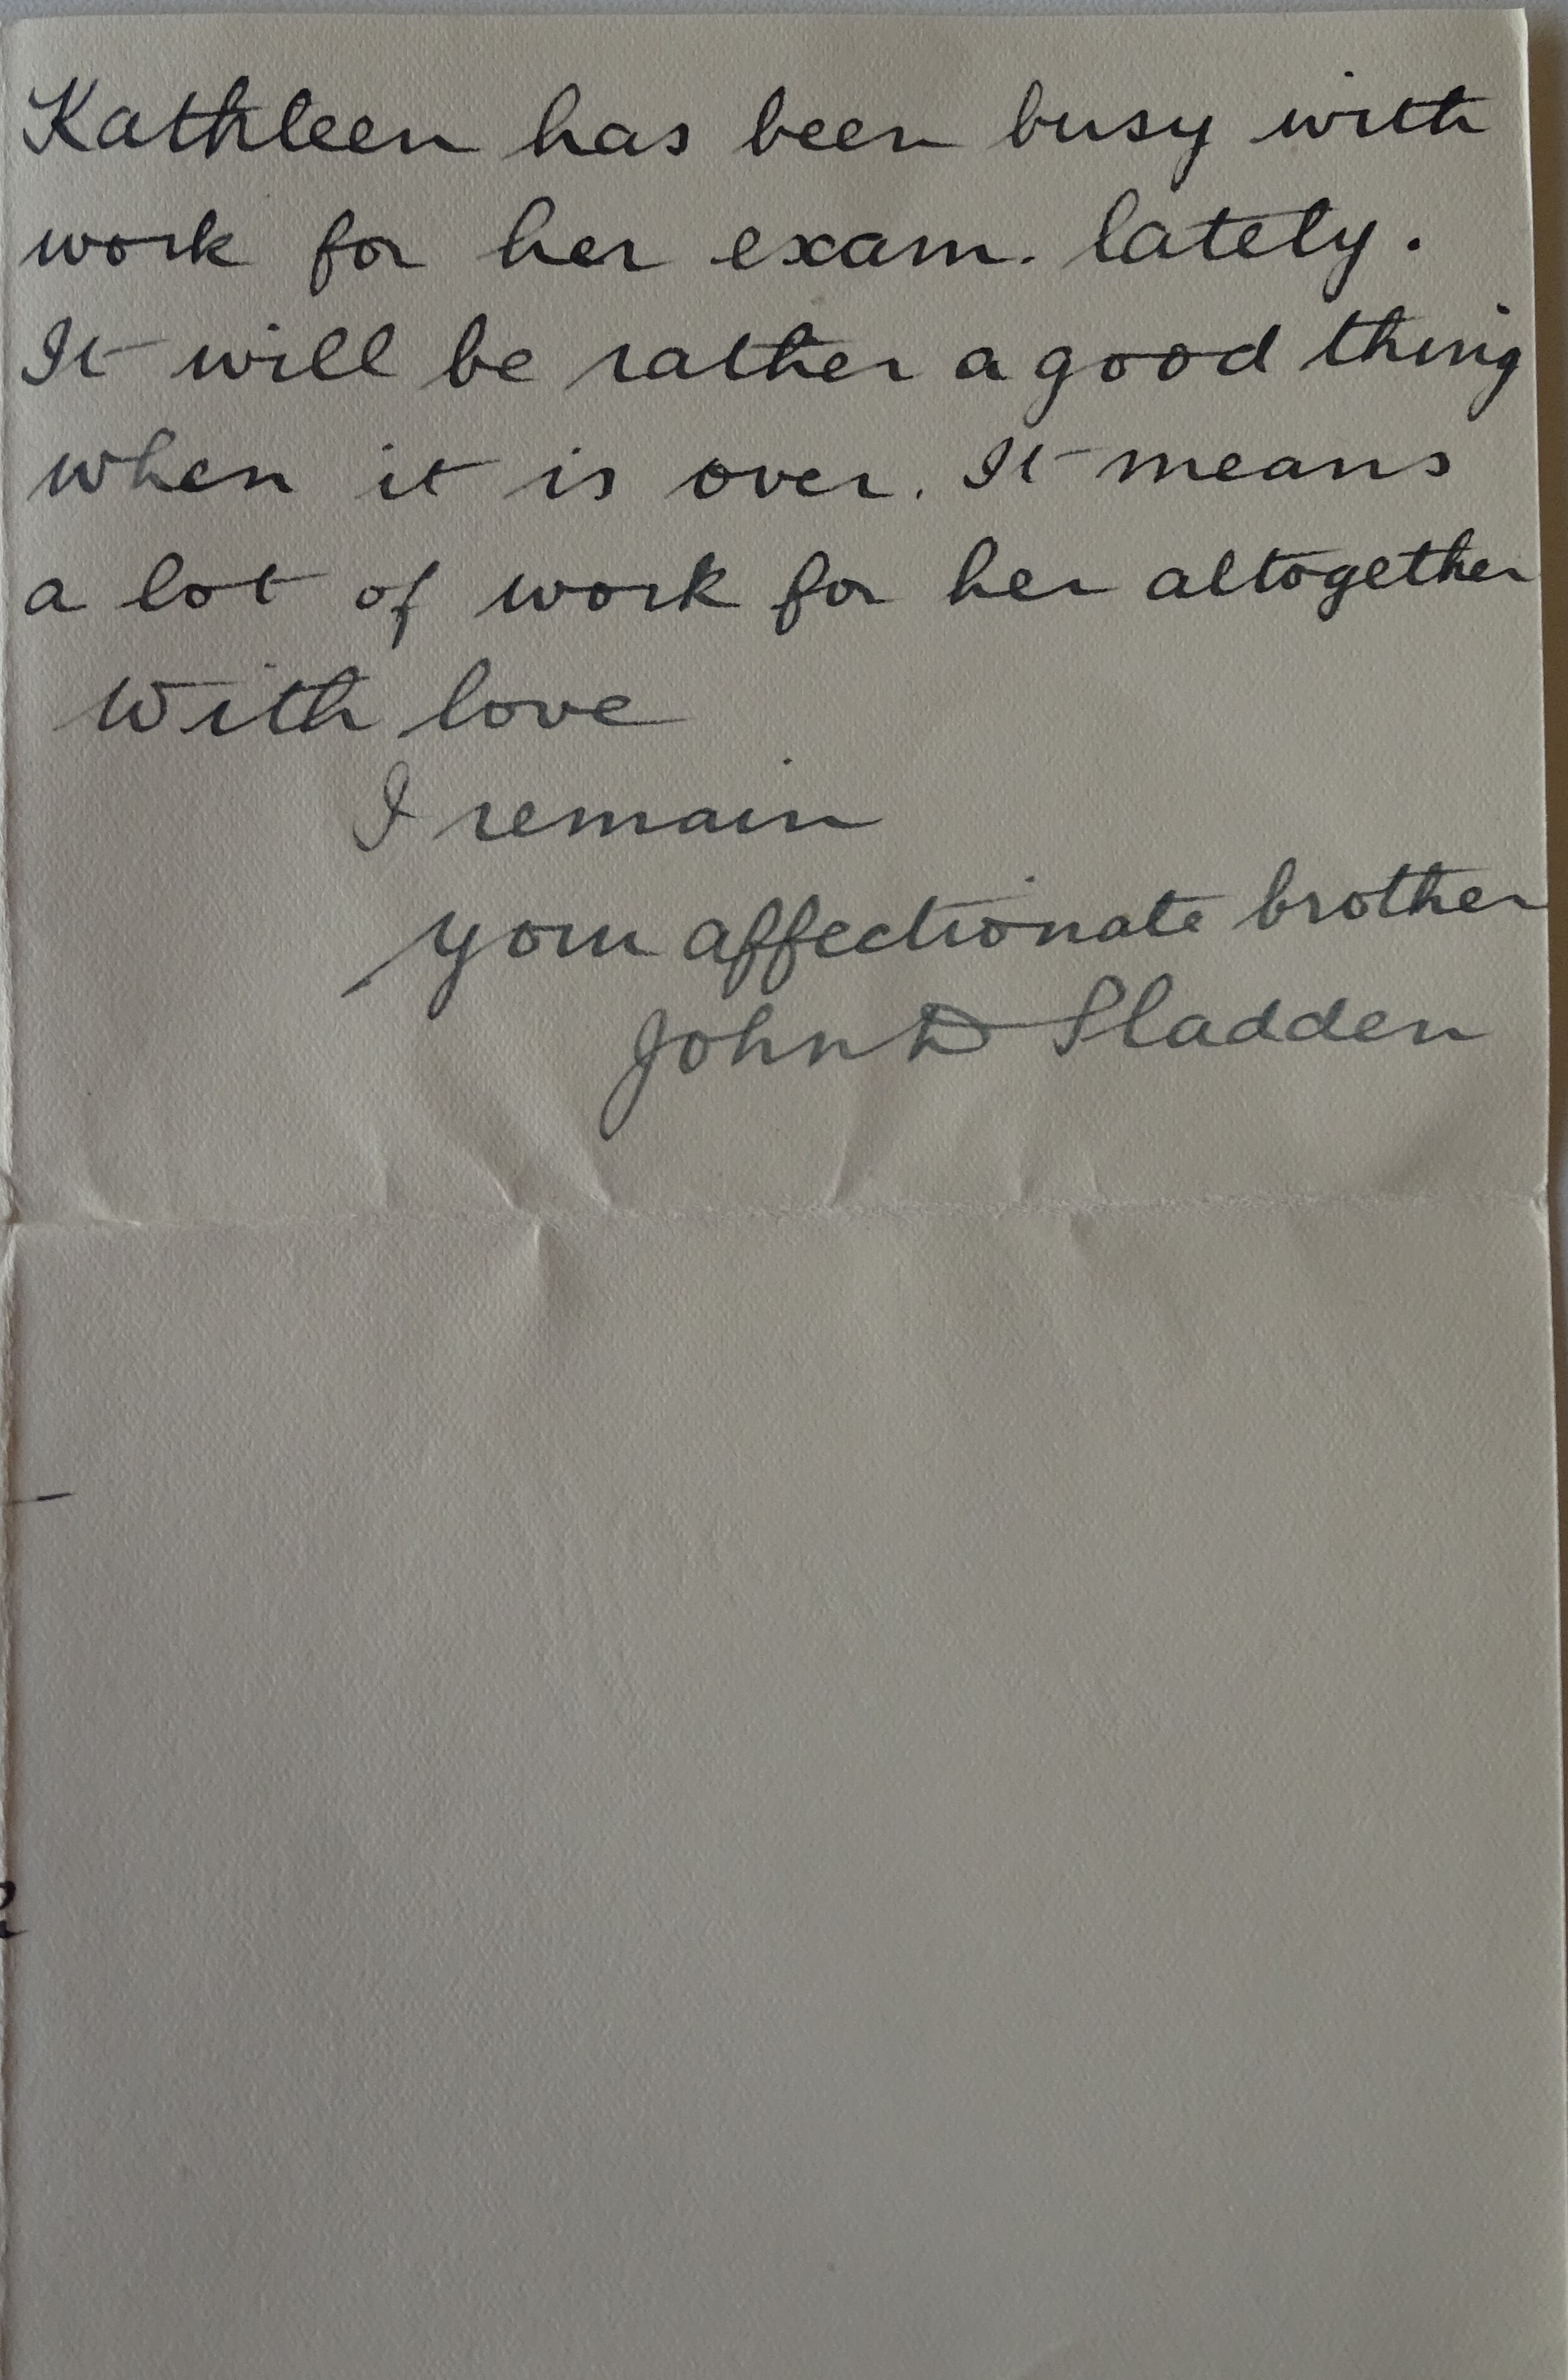 Kathleen has been busy with
work for her exam. lately.
It will be rather a good thing
when it is over. It means
a lot of work for her altogether
With love
I remain
your affectionate brother
John D Sladden